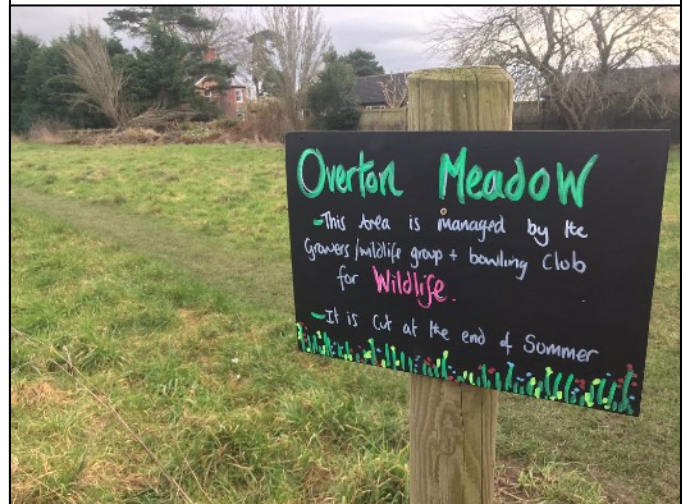 Overton Meadow
- This Area is managed by the
Growers/wildlife group + bowling Club
for Wildlife.
- It is cut at the end of Summer